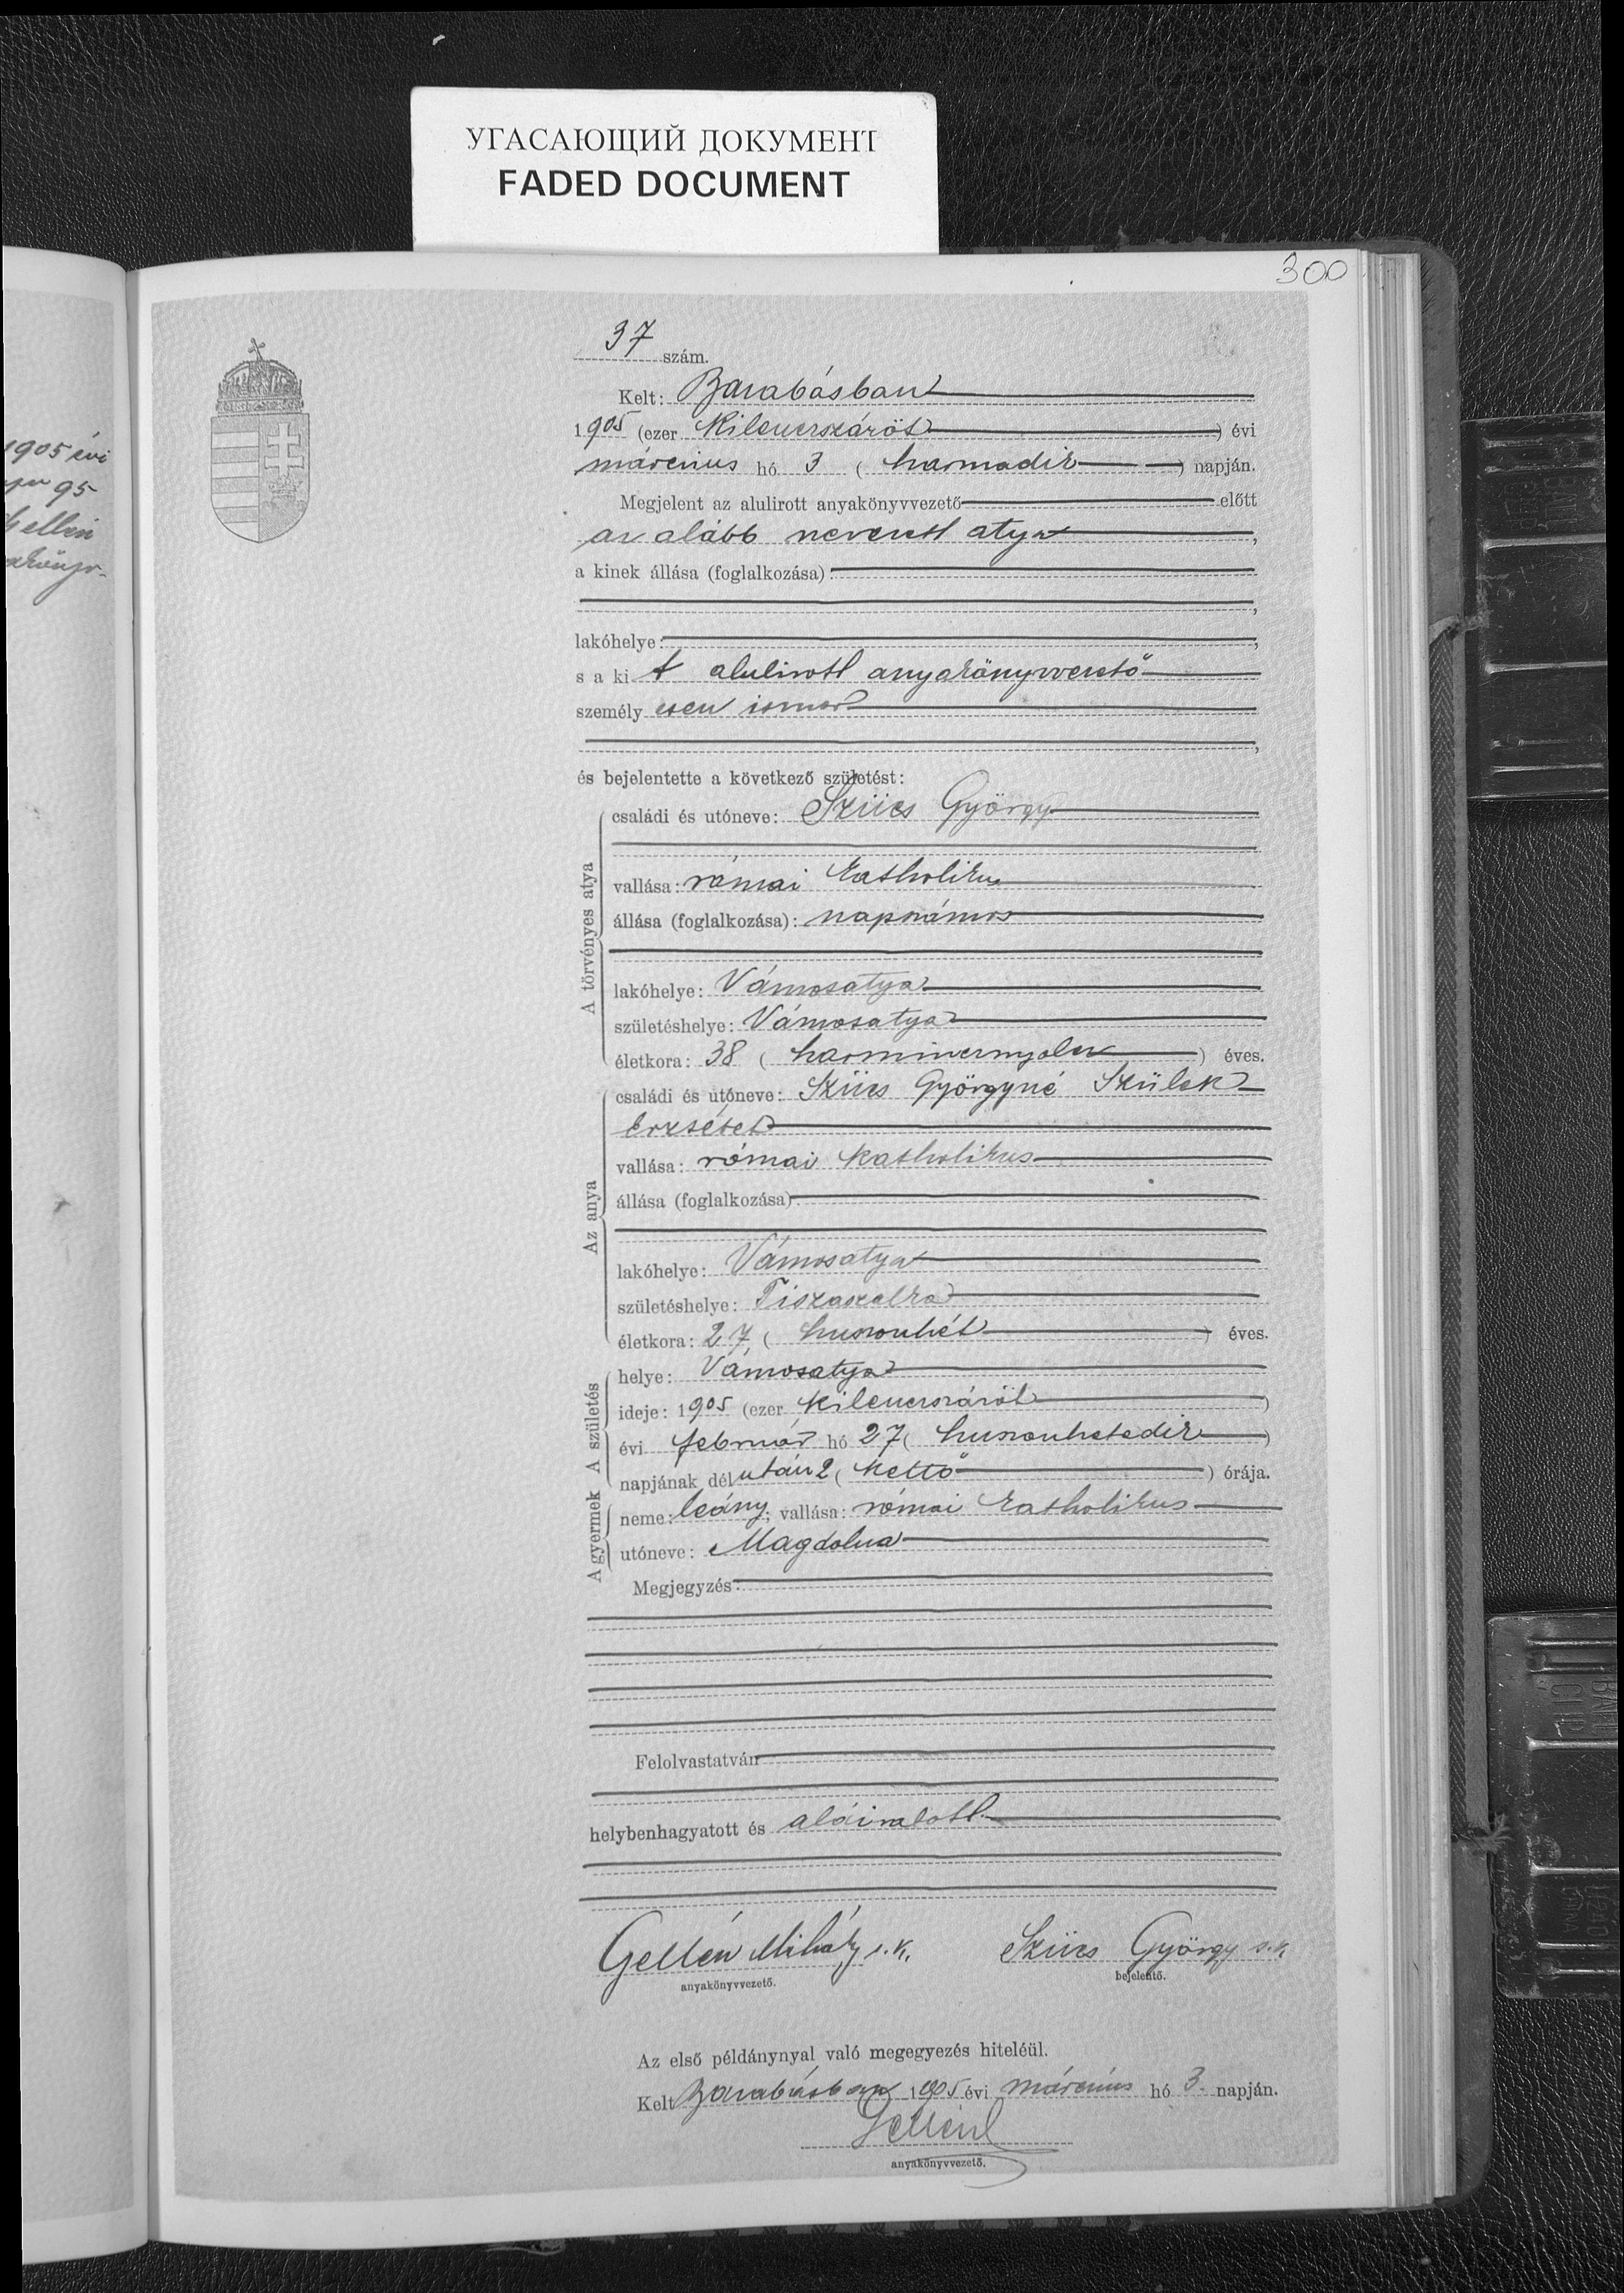 УГАСАЮЩИЙ ДОКУМЕНТ
FADED DOCUMENT
300
1905 évi
95
37 szám.
Kelt: Barabásban
1905 (ezer kilencszázöt) évi
március hó 3 (harmadik) napján.
Megjelent az alulirott anyakönyvvezető előtt
az alább nevezett atya,
a kinek állása (foglalkozása):
lakóhelye:
s a kit alulirott anyakönyvvezető
személyesen ismer
és bejelentette a következő születést:
A törvényes atya
családi és utóneve: Szücs György
vallása: római katholikus
állása (foglalkozása): napszámos
lakóhelye: Vámosatya
születéshelye: Vámosatya
életkora: 38 (harmincznyolcz) éves.
Az anya
családi és utóneve: Szücs Györgyné Szülek
Erzsébet
vallása: római katholikus
állása (foglalkozása)
lakóhelye: Vámosatya
születéshelye: Tiszaszalka
életkora: 27 (huszonhét) éves.
A születés
helye: Vámosatya
ideje: 1905 (ezer kilencszázöt)
évi február hó 27 (huszonhetedik)
napjának délután 2 (kettő) órája.
A gyermek
neme: leány; vallása: római katholikus
utóneve: Magdolna
Megjegyzés:
Felolvastatván
helybenhagyatott és aláiratott.
Gellén Mihály s. k. Szücs György s. k.
anyakönyvvezető. bejelentő.
Az első példánynyal való megegyezés hiteléül.
Kelt Barabásban 1905 évi március hó 3. napján.
Gellén
anyakönyvvezető.